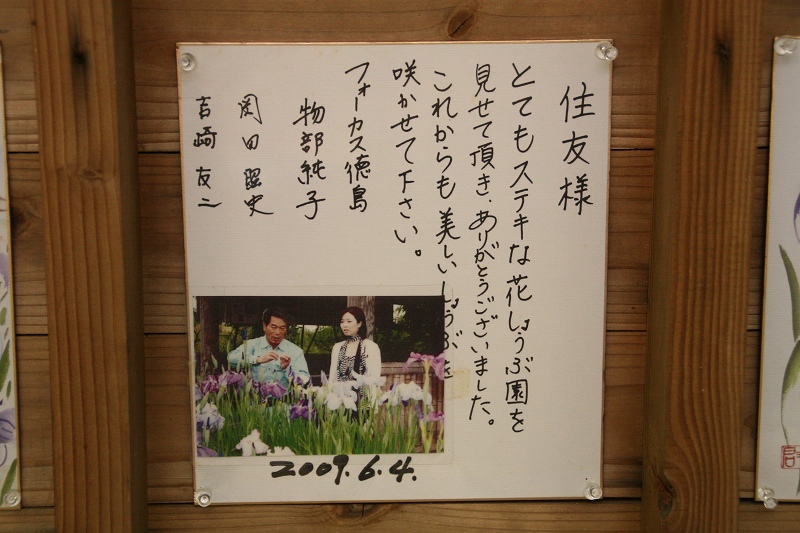 住友様
とてもステキな花しょうぶ園を
見せて頂き、ありがとうございました。
これからも美しいしょうぶを
咲かせて下さい。
フォーカス徳島
物部純子
岡田昭史
吉崎友二
2009.6.4.